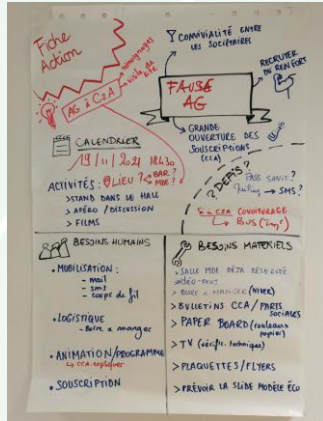 Fiche
Action
AG à C2A
témoignages
CONVIVIALITÉ ENTRE
LES SOCIÉTAIRES
RECRUTER
DU RENFORT
FAUSSE
AG
GRANDE
OUVERTURE DES
SOUSCRIPTIONS
(CCA)
CALENDRIER
19/11/2021 18h30
ACTIVITÉS : LIEU ? BAR ?
MDE ?
> STAND DANS LE HALL
> APÉRO / DISCUSSION
> FILMS
? DÉFIS ?
PASS SANIT. ?
→ SMS ?
COVOITURAGE
BUS
BESOINS HUMAINS
• MOBILISATION :
- mail
- sms
- coups de fil
• LOGISTIQUE
- Boire & manger
• ANIMATION/PROGRAMME
↳ CCA expliquer
• SOUSCRIPTION
BESOINS MATERIELS
• SALLE MDE DÉJÀ RÉSERVÉE
> BOIRE & MANGER (HIVER)
> BULLETINS CCA / PARTS
SOCIALES
> PAPER BOARD (rouleaux
papier)
> TV (vérific. technique)
> PLAQUETTES / FLYERS
> PRÉVOIR LA SLIDE MODÈLE ÉCO